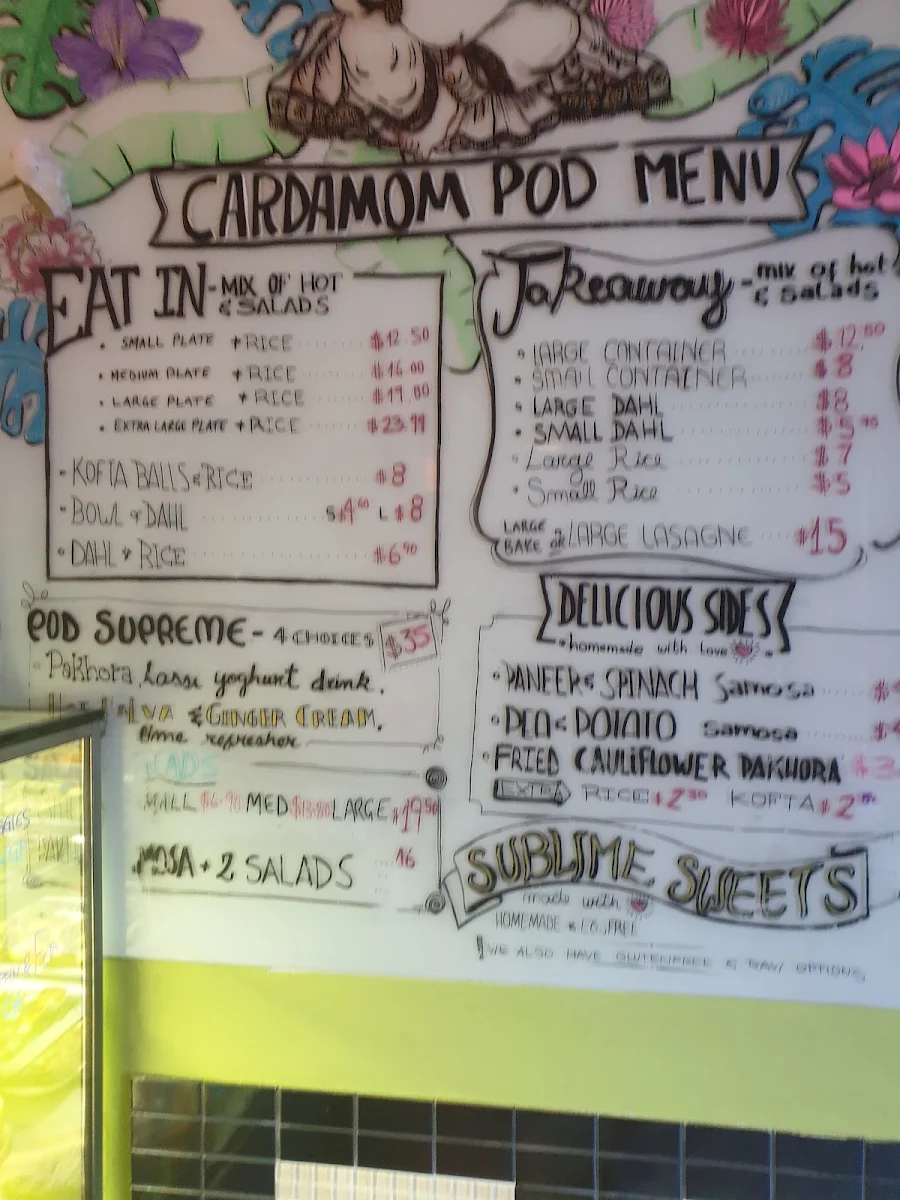 CARDAMOM POD MENU
EAT IN - MIX OF HOT
& SALADS
• SMALL PLATE + RICE $12.50
• MEDIUM PLATE + RICE $16.00
• LARGE PLATE + RICE
• EXTRA LARGE PLATE + RICE $23.99
• KOFTA BALLS & RICE $8
• BOWL of DAHL S $4 L $8
• DAHL & RICE $6.90
Takeaway - mix of hot
& salads
• LARGE CONTAINER $12.50
• SMALL CONTAINER $8
• LARGE DAHL $8
• SMALL DAHL $5
• Large Rice $7
• Small Rice $5
LARGE
BAKE or LARGE LASAGNE $15
POD SUPREME - 4 CHOICES $35
• Pakhora, Lassi yoghurt drink.
& GINGER CREAM.
lime refresher
MED LARGE $19.50
+ 2 SALADS 16
DELICIOUS SIDES
• homemade with love •
• PANEER & SPINACH Samosa
• PEA & POTATO Samosa
• FRIED CAULIFLOWER PAKHORA
EXTRA RICE $2 KOFTA $2
SUBLIME SWEETS
made with
HOMEMADE & EGG FREE
! WE ALSO HAVE GLUTENFREE & RAW OPTIONS